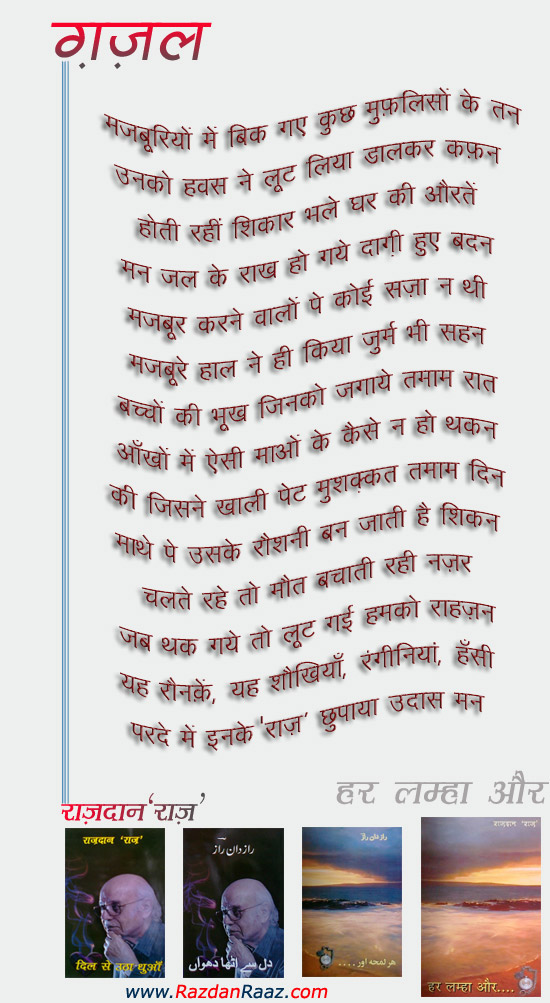 ग़ज़ल
मजबूरियों में बिक गए कुछ मुफ़लिसों के तन
उनको हवस ने लूट लिया डालकर कफ़न
होती रहीं शिकार भले घर की औरतें
मन जल के राख हो गये दाग़ी हुए बदन
मजबूर करने वालों पे कोई सज़ा न थी
मजबूरे हाल ने ही किया जुर्म भी सहन
बच्चों की भूख जिनको जगाये तमाम रात
आँखों में ऐसी माओं के कैसे न हो थकन
की जिसने खाली पेट मुशक़्क़त तमाम दिन
माथे पे उसके रौशनी बन जाती है शिकन
चलते रहे तो मौत बचाती रही नज़र
जब थक गये तो लूट गई हमको राहज़न
यह रौनक़ें, यह शौखियाँ, रंगीनियां, हँसी
परदे में इनके 'राज़' छुपाया उदास मन
हर लम्हा और
राज़दान 'राज़'
राज़दान 'राज़'
दिल से उठा धुआँ
رازدان رازؔ
دل سے اٹھا دھواں
رازدان راز
ہر لمحہ اور....
राज़दान 'राज़'
हर लम्हा और....
www.RazdanRaaz.com